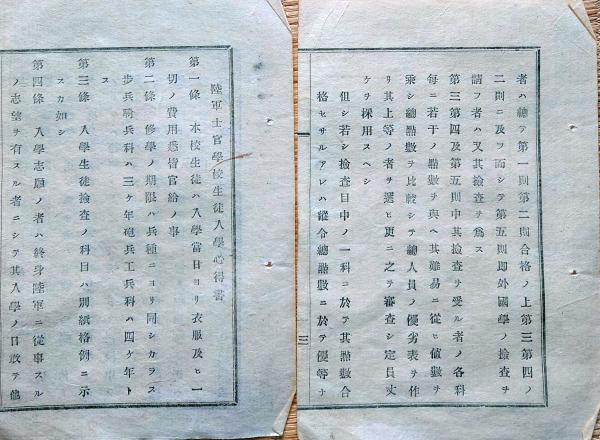 陸軍士官學校生徒入學心得書
第一條　本校生徒ハ入學當日ヨリ衣服及ヒ一
切ノ費用悉皆官給ノ事
第二條　修學ノ期限ハ兵種ニヨリ同シカラス
步兵騎兵科ハ三ケ年砲兵工兵科ハ四ケ年ト
ス
第三條　入學生徒撿査ノ科目ハ別紙格例ニ示
スカ如シ
第四條　入學志願ノ者ハ終身陸軍ニ從事スル
ノ志望ヲ有スル者ニシテ其入學ノ日敢テ他
者ハ總テ第一則第二則合格ノ上第三第四ノ
二則ニ及フ而シテ第五則即外國學ノ撿査ヲ
請フ者ハ又其撿査ヲ爲ス
第三第四及第五則中其撿査ヲ受ル者ノ各科
每ニ若干ノ點數ヲ與ヘ其難易ニ從ヒ値數ヲ
乘シ總點數ヲ比較シテ總人員ノ優劣表ヲ作
リ其上等ノ者ヲ選ヒ更ニ之ヲ審査シ定員丈
ケヲ採用スヘシ
但シ若シ撿査目中ノ一科ニ於テ其點數合
格セサルアレハ縱令總點數ニ於テ優等ナ
三